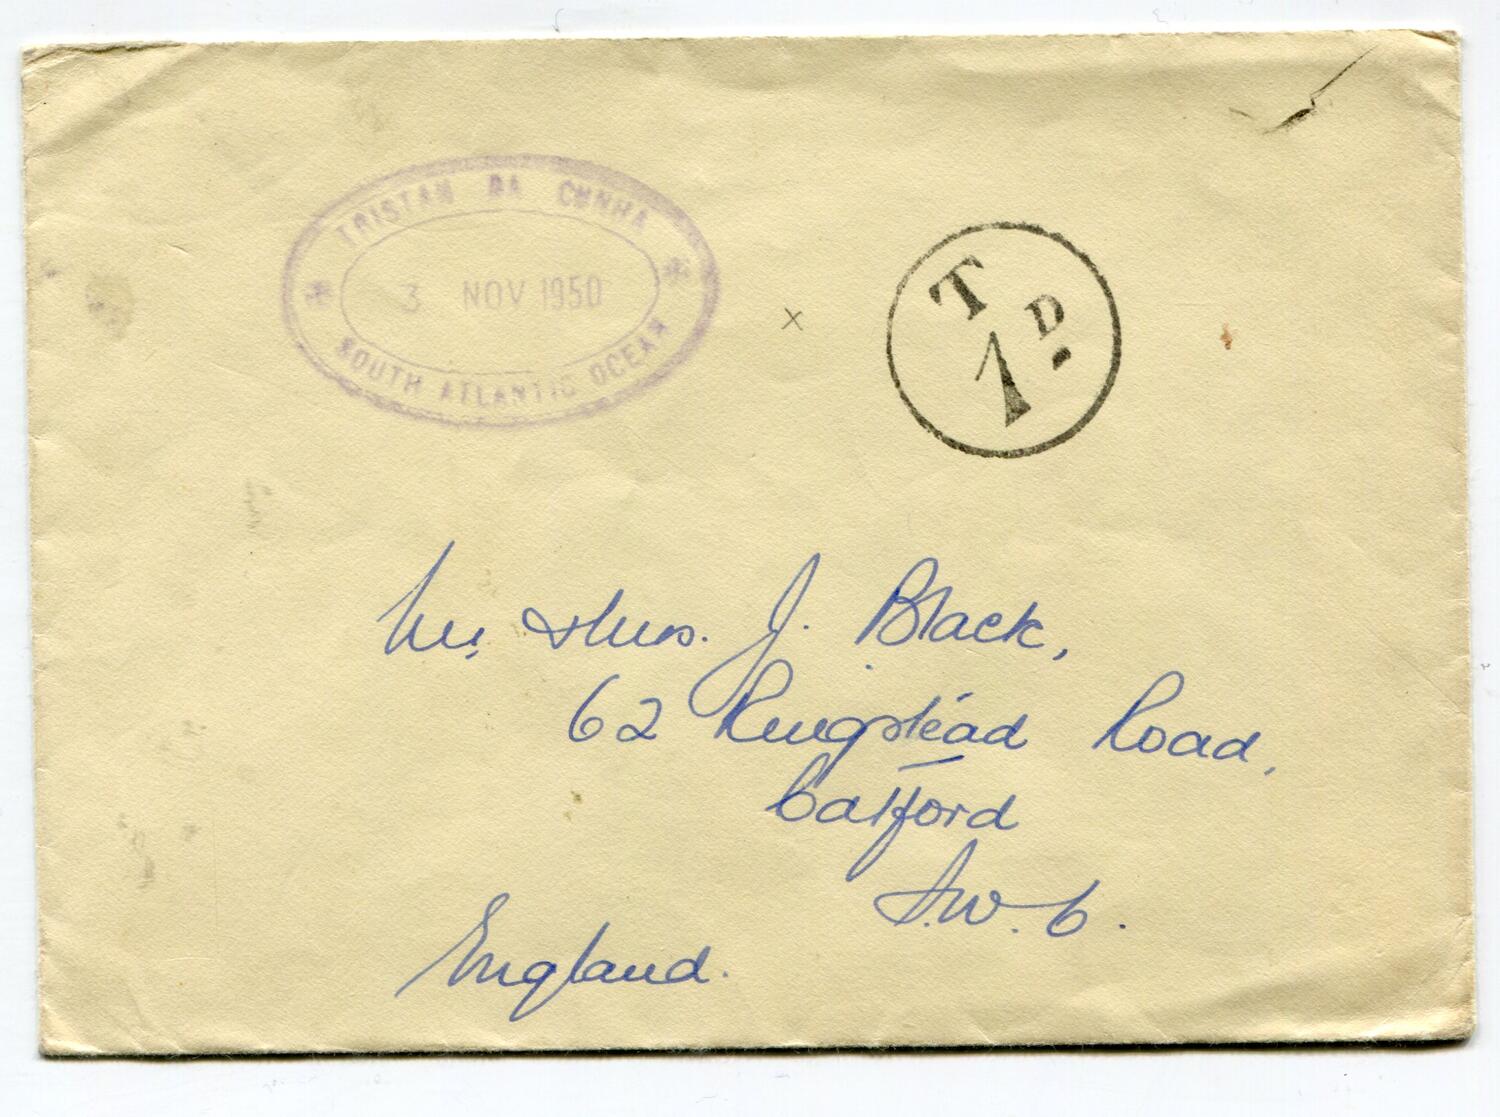 TRISTAN DA CUNHA
3 NOV 1950
SOUTH ATLANTIC OCEAN
x
T
1D
Mr. Thos. J. Black,
62 Kingstead Road,
Catford
S.W. 6.
England.